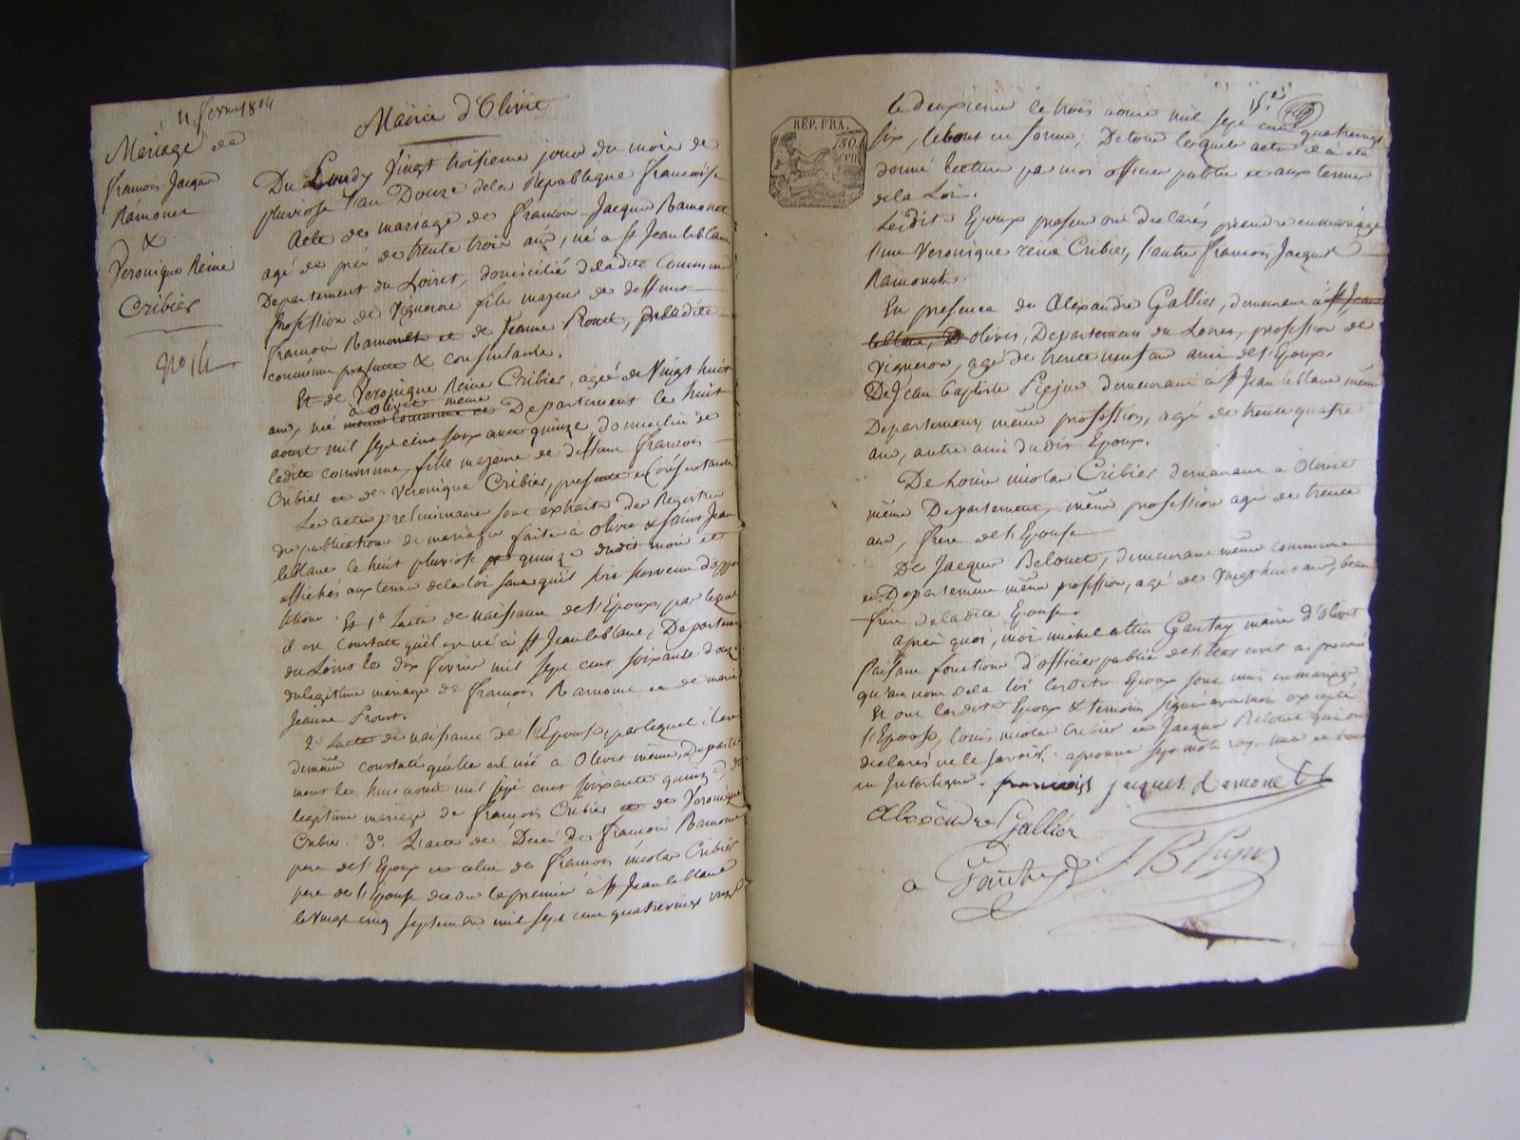 Mairie d'Olivet
Mariage de
françois Jacques
Ramonet
&
Veronique Reine
Cribier
N° 14
Du Lundy Vingt troisieme jour du mois de
pluviose l'an Douze de la Republique francoise
Acte de mariage de francois Jacques Ramonet
agé de près de trente trois ans, né a St Jean le blanc
Departement du Loiret, domicilié de ladite commune
profession de Vigneron fils majeur de deffunt
francois Ramonet et de Jeanne Prout, de ladite
commune presente & consentante.
Et de Veronique Reine Cribier, agée de Vingt huit
a olivet meme
ans, née meme commune et Departement le huit
aout mil sept cent soixante quinze, domiciliée de
ladite commune, fille majeure de deffunt francois
Cribier et de Veronique Cribier, presente et Consentante
Les actes preliminaires sont extraits des Registres
de publications de mariages faites à olivet & saint Jean
le blanc le huit pluviose et quinze dudit mois et
affichés aux termes de la loi sans qu'il soit survenu d'oppo
sition. Et 1° l'acte de naissance de l'Epoux, par lequel
il est constaté qu'il est né à St Jean le blanc, Departement
du Loiret le dix fevrier mil sept cent soixante onze
du legitime mariage de francois Ramonet et de marie
Jeanne Prout.
2° l'acte de naissance de l'Epouse par lequel il est
demême constaté qu'elle est née a Olivet même Departe
ment le huit aout mil sept cent soixante quinze, du
legitime mariage de francois Cribier et de Veronique
Cribier. 3° L'acte de Décès de francois Ramonet
pere de l'Epoux et celui de francois nicolas Cribier
pere de l'Epouse decédé le premier à St Jean le blanc
le vingt cinq septembre mil sept cent quatrevingt
REP. FRA.
le deuxieme le trois mil sept cent quatrevingt
six, le tout en forme; De tous lesquels actes il a été
donné lecture par moi officier public et aux termes
de la Loi.
Lesdits Epoux presens ont declarés prendre en mariage
l'une Veronique reine Cribier, l'autre francois Jacques
Ramonet.
En presence de Alexandre Gallier, demeurant à St Jean
le blanc, D olivet, Departement du Loiret, profession de
vigneron, agé de trente neuf ans ami de l'Epoux.
De Jean baptiste Pejus demeurant à St Jean le blanc même
Departement, même profession, agé de trente quatre
ans, autre ami dudit Epoux.
De Louis nicolas Cribier demeurant à Olivet
même Departement, même profession agé de trente
ans, frere de l'Epouse
De Jacques Belouet, demeurant même commune
et Departement même profession, agé de vingt huit ans, beau
frere de ladite Epouse.
après quoi, moi michel Gautry maire d'olivet
faisant fonctions d'officier public de l'etat civil ai prononcé
qu'au nom de la loi lesdits Epoux sont unis en mariage
Et ont lesdits Epoux & temoins signé avec moi excepté
l'Epouse, Louis nicolas Cribier et Jacques Belouet qui ont
declarés ne le savoir. approuvé sept mots rayés
en Interligne. francoist jacques Ramonet
Alexandre Gallier
Gautry J B Pejus